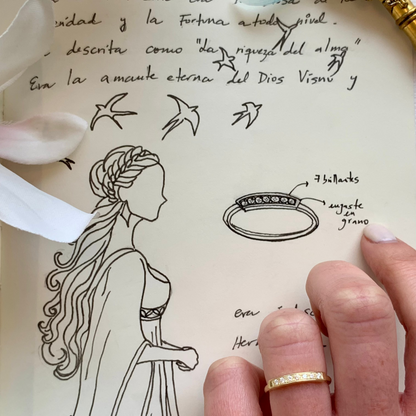 y la Fortuna a todo nivel.
descrita como "La riqueza del alma"
Era la amante eterna del Dios Visnú y
7 brillantes
engaste
en
grano
era
Her